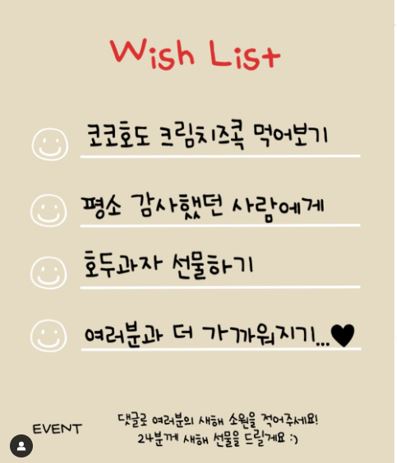 Wish List
코코호도 크림치즈콕 먹어보기
평소 감사했던 사람에게
호두과자 선물하기
여러분과 더 가까워지기...♥
EVENT
댓글로 여러분의 새해 소원을 적어주세요!
24분께 새해 선물을 드릴게요 :)